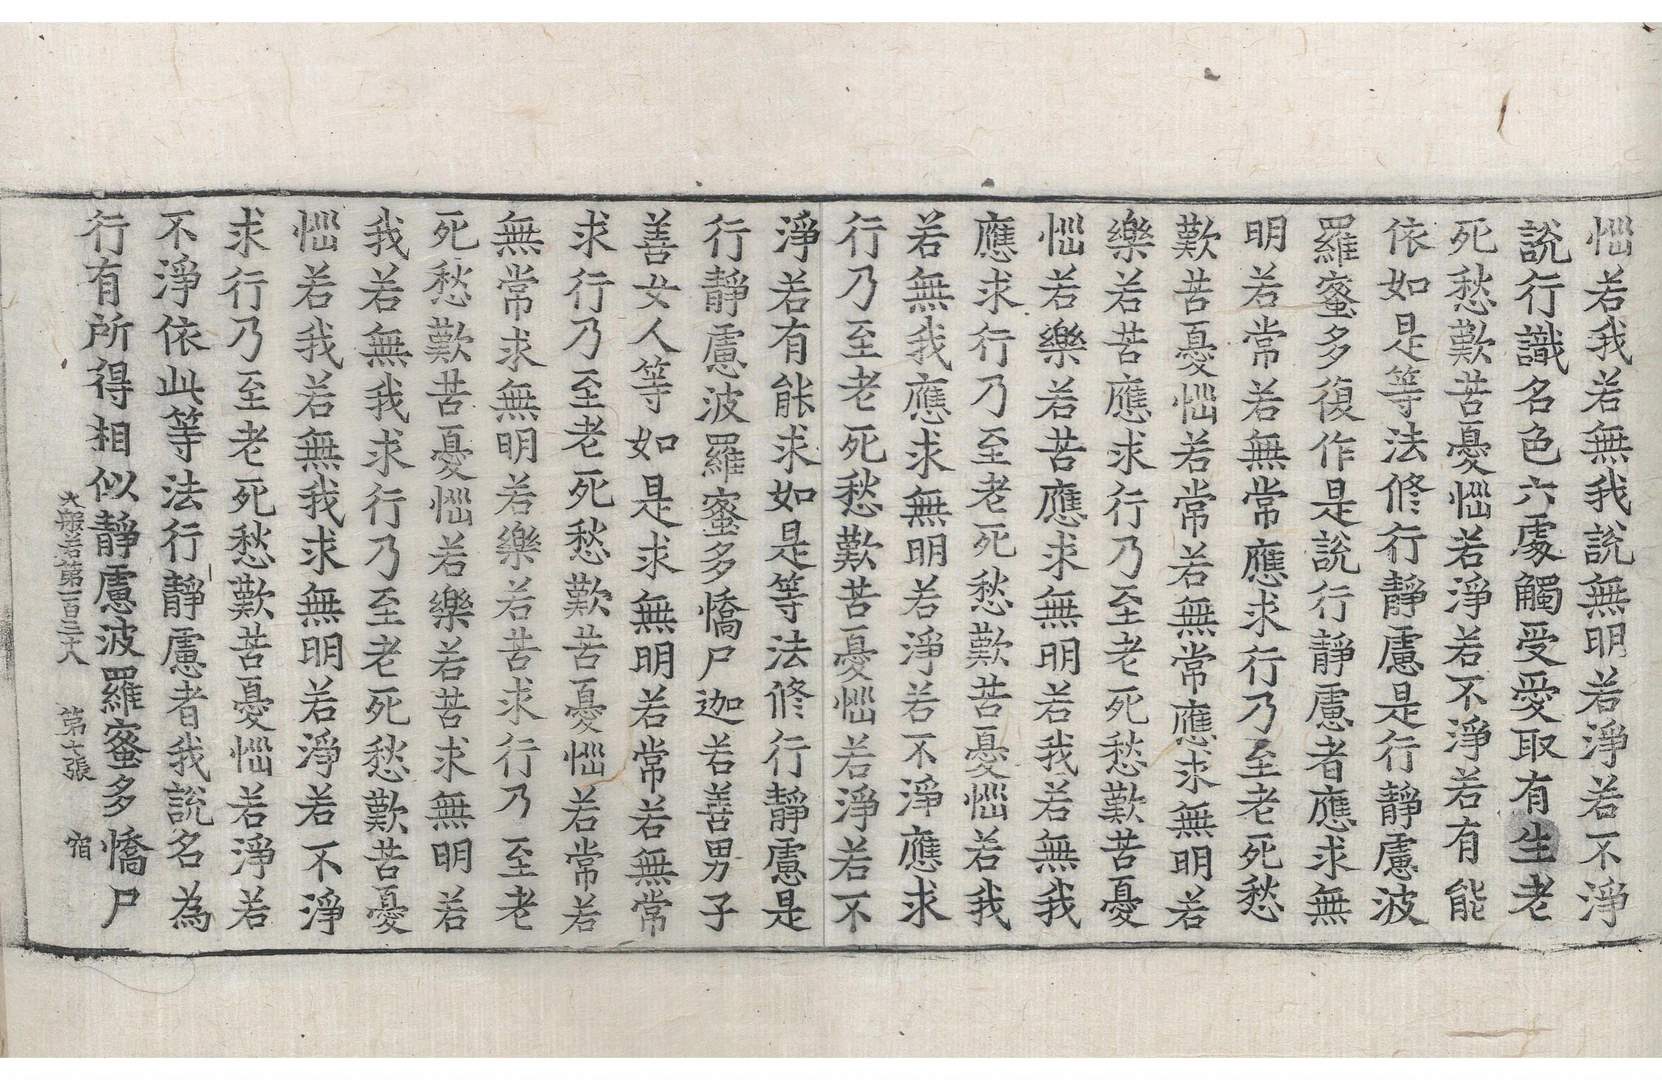 惱若我若無我說無明若淨若不淨
說行識名色六處觸受愛取有生老
死愁歎苦憂惱若淨若不淨若有能
依如是等法修行靜慮是行靜慮波
羅蜜多復作是說行靜慮者應求無
明若常若無常應求行乃至老死愁
歎苦憂惱若常若無常應求無明若
樂若苦應求行乃至老死愁歎苦憂
惱若樂若苦應求無明若我若無我
應求行乃至老死愁歎苦憂惱若我
若無我應求無明若淨若不淨應求
行乃至老死愁歎苦憂惱若淨若不
淨若有能求如是等法修行靜慮是
行靜慮波羅蜜多憍尸迦若善男子
善女人等如是求無明若常若無常
求行乃至老死愁歎苦憂惱若常若
無常求無明若樂若苦求行乃至老
死愁歎苦憂惱若樂若苦求無明若
我若無我求行乃至老死愁歎苦憂
惱若我若無我求無明若淨若不淨
求行乃至老死愁歎苦憂惱若淨若
不淨依此等法行靜慮者我說名為
行有所得相似靜慮波羅蜜多憍尸
大般若第一百三十八 第七張 宿